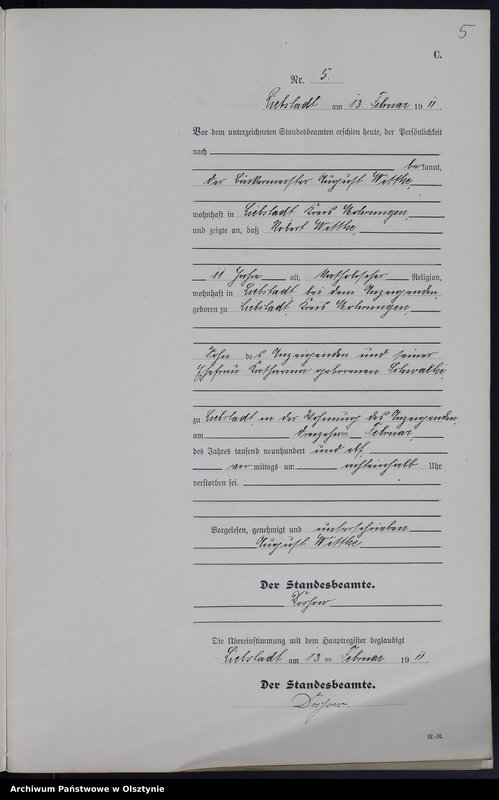 5
C.
Nr. 5.
Liebstadt am 13 Februar 19 11.
Vor dem unterzeichneten Standesbeamten erschien heute, der Persönlichkeit
nach
be kannt,
der Bäckermeister August Wittke,
wohnhaft in Liebstadt Kreis Mohrungen,
und zeigte an, daß Robert Wittke,
11 Jahre alt, katholischer Religion,
wohnhaft in Liebstadt bei dem Anzeigenden,
geboren zu Liebstadt, Kreis Mohrungen,
Sohn des Anzeigenden und seiner
Ehefrau Katharina geborenen Schwalke,
zu Liebstadt in der Wohnung des Anzeigenden,
am dreizehn ten Februar,
des Jahres tausend neunhundert und elf
vor mittags um achteinhalb Uhr
verstorben sei.
Vorgelesen, genehmigt und unterschrieben
August Wittke
Der Standesbeamte.
Die Übereinstimmung mit dem Hauptregister beglaubigt
Liebstadt am 13 ten Februar 19 11.
Der Standesbeamte.
N.-R.
Archiwum Państwowe w Olsztynie